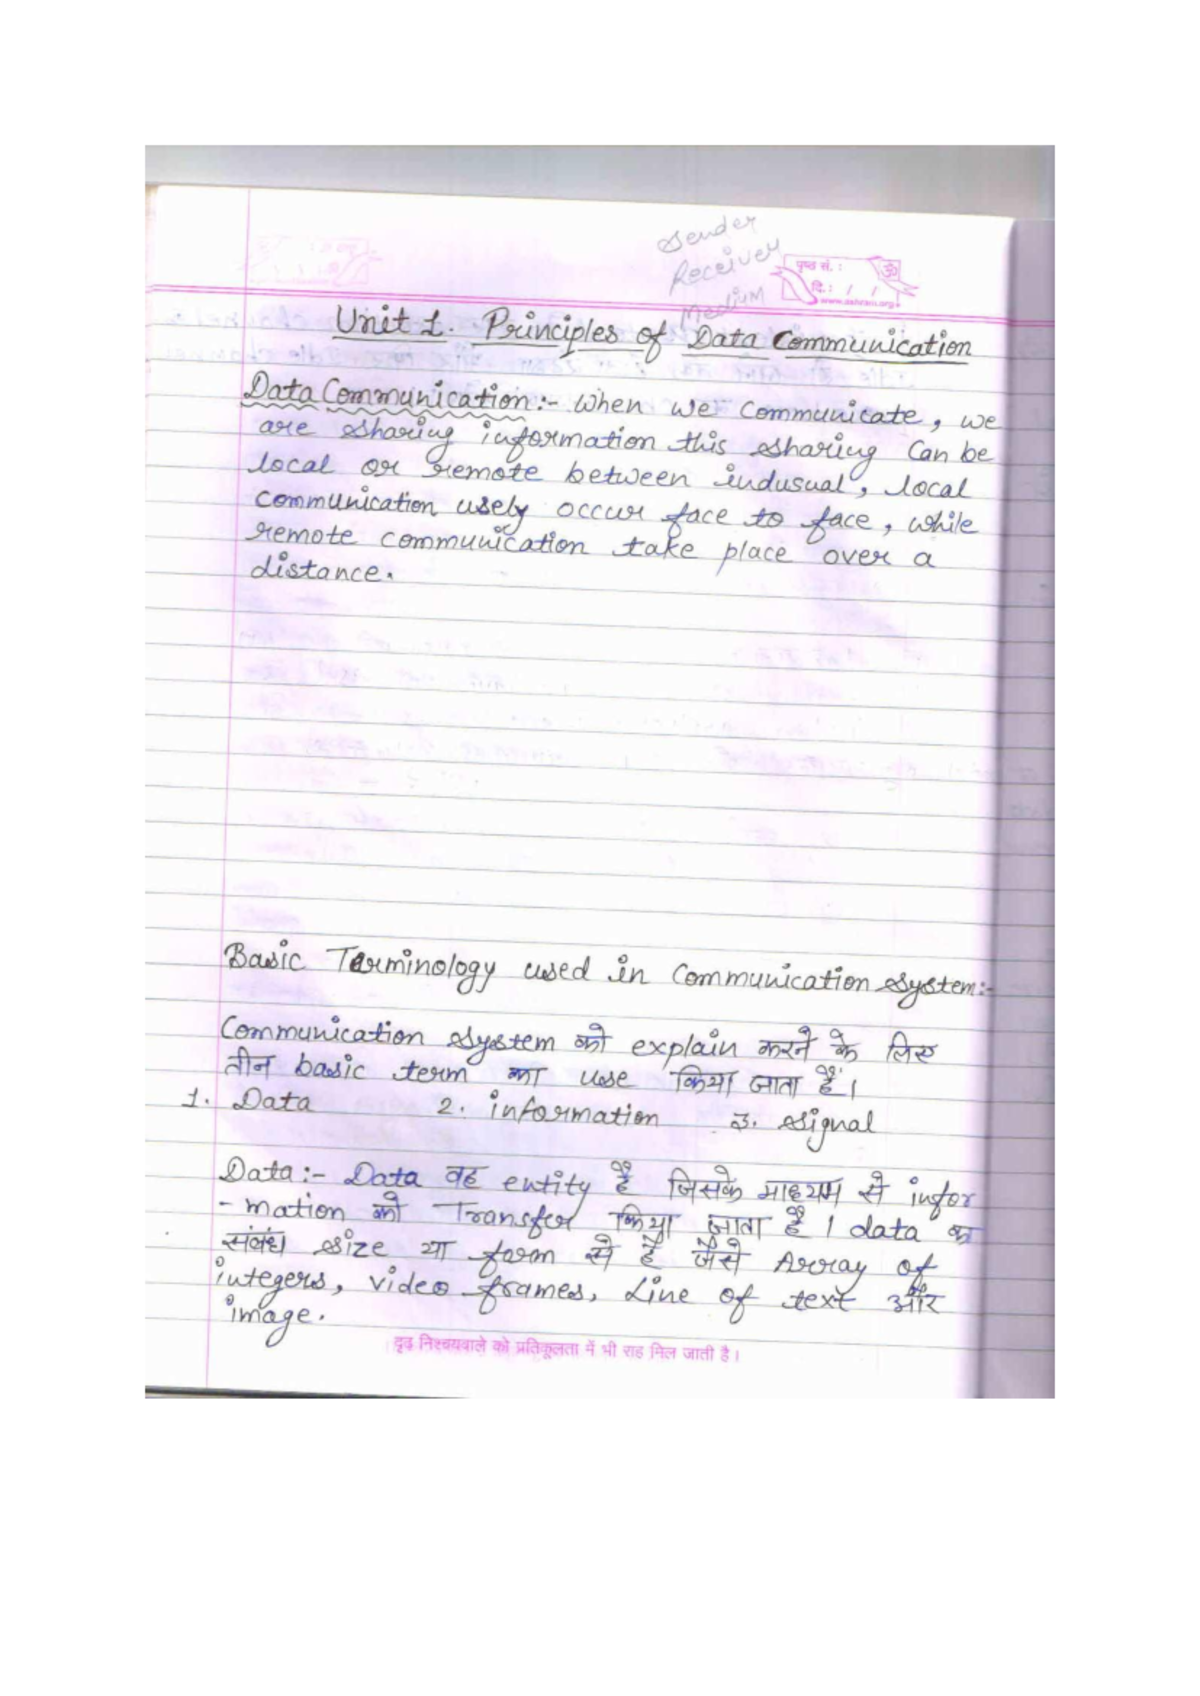 Sender
Receiver
Medium
पृष्ठ सं. :
ॐ
दि.: / /
www.ashram.org
Unit 1. Principles of Data Communication
Data Communication:- When we communicate, we
are sharing information this sharing Can be
local or remote between indusual, local
communication usely occur face to face, while
remote communication take place over a
distance.
Basic Terminology used in Communication System:-
Communication System को explain करने के लिए
तीन basic term का use किया जाता है।
1. Data 2. information 3. Signal
Data:- Data वह entity है जिसके माध्यम से infor
- mation को Transfer किया जाता है। data का
संबंध size या form से है जैसे Array of
integers, video frames, Line of text और
image.
दृढ़ निश्चयवाले को प्रतिकूलता में भी राह मिल जाती है।